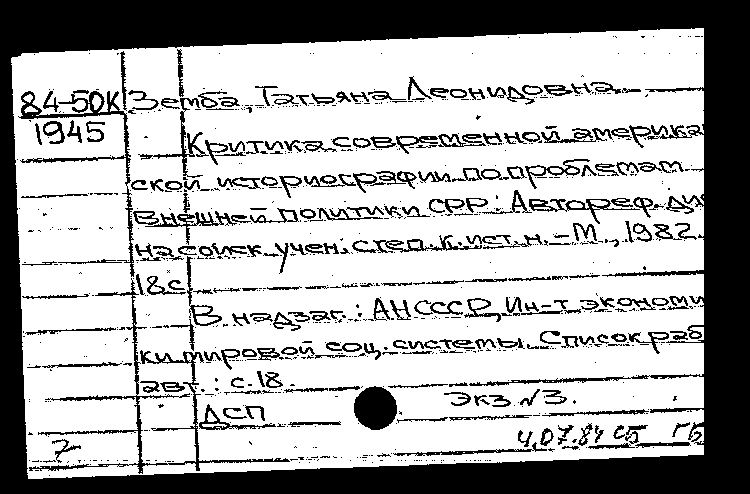 84-50К Земба, Татьяна Леонидовна
1945
Критика современной америка
ской историографии по проблемам
внешней политики СРР: Автореф. дис
на соиск. учен. степ. к. ист. н. - М., 1982.
18 с
В надзаг.: АН СССР, Ин-т экономи
ки мировой соц. системы. Список раб
авт.: с. 18.
ДСП Экз. №3.
7 4.07.84 СБ ГБ